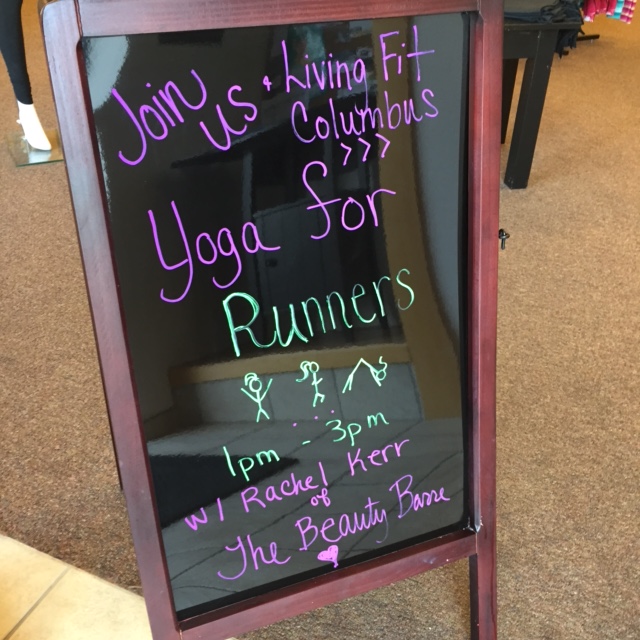 Join us + Living Fit
Columbus
>>>
Yoga for
Runners
1pm - 3pm
w/ Rachel Kerr
of
The Beauty Barre